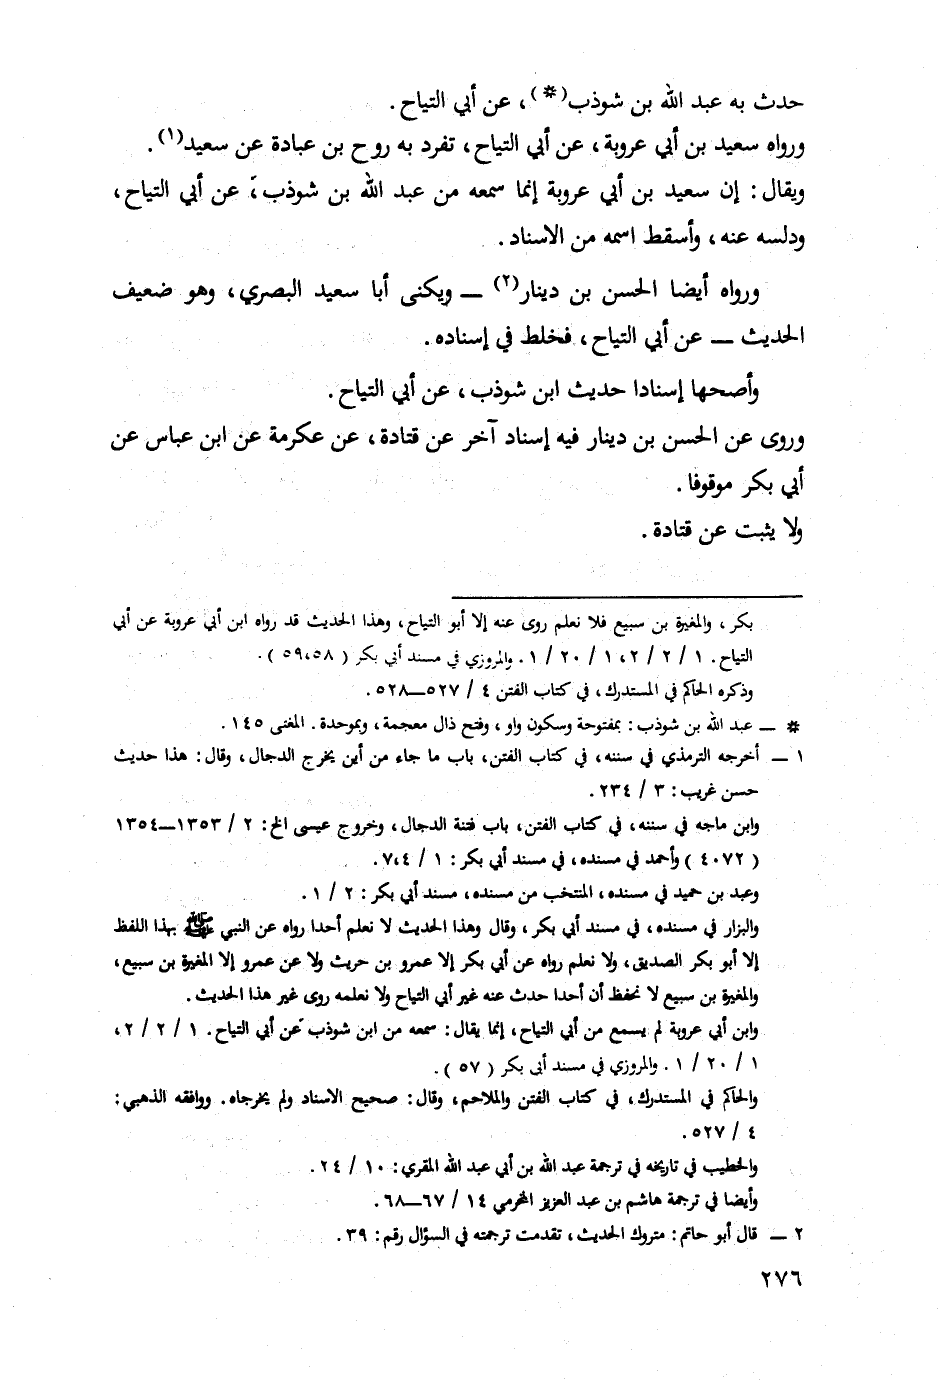 حدث به عبد الله بن شوذب(*)، عن أبي التياح.
ورواه سعيد بن أبي عروبة، عن أبي التياح، تفرد به روح بن عبادة عن سعيد(١).
ويقال: إن سعيد بن أبي عروبة إنما سمعه من عبد الله بن شوذب، عن أبي التياح،
ودلسه عنه، وأسقط اسمه من الاسناد.
ورواه أيضا الحسن بن دينار(٢) ــ ويكنى أبا سعيد البصري، وهو ضعيف
الحديث ــ عن أبي التياح، فخلط في إسناده.
وأصحها إسنادا حديث ابن شوذب، عن أبي التياح.
وروى عن الحسن بن دينار فيه إسناد آخر عن قتادة، عن عكرمة عن ابن عباس عن
أبي بكر موقوفا.
ولا يثبت عن قتادة.
بكر، والمغيرة بن سبيع فلا نعلم روى عنه إلا أبو التياح، وهذا الحديث قد رواه ابن أبي عروبة عن أبي
التياح. ١ / ٢ / ٢، ١ / ٢٠ / ١. والمروزي في مسند أبي بكر (٥٩،٥٨).
وذكره الحاكم في المستدرك، في كتاب الفتن ٤ / ٥٢٧ــ٥٢٨.
* ــ عبد الله بن شوذب: بمفتوحة وسكون واو، وفتح ذال معجمة، وبموحدة. المغنى ١٤٥.
١ ــ أخرجه الترمذي في سننه، في كتاب الفتن، باب ما جاء من أين يخرج الدجال، وقال: هذا حديث
حسن غريب: ٣ / ٢٣٤.
وابن ماجه في سننه، في كتاب الفتن، باب فتنة الدجال، وخروج عيسى الخ: ٢ / ١٣٥٣ــ١٣٥٤
(٤٠٧٢) وأحمد في مسنده، في مسند أبي بكر: ١ / ٧،٤.
وعبد بن حميد في مسنده، المنتخب من مسنده، مسند أبي بكر: ٢ / ١.
والبزار في مسنده، في مسند أبي بكر، وقال وهذا الحديث لا نعلم أحدا رواه عن النبي ﷺ بهذا اللفظ
إلا أبو بكر الصديق، ولا نعلم رواه عن أبي بكر إلا عمرو بن حريث ولا عن عمرو إلا المغيرة بن سبيع،
والمغيرة بن سبيع لا نحفظ أن أحدا حدث عنه غير أبي التياح ولا نعلمه روى غير هذا الحديث.
وابن أبي عروبة لم يسمع من أبي التياح، إنما يقال: سمعه من ابن شوذب عن أبي التياح. ١ / ٢ / ٢،
١ / ٢٠ / ١. والمروزي في مسند أبى بكر (٥٧).
والحاكم في المستدرك، في كتاب الفتن والملاحم، وقال: صحيح الاسناد ولم يخرجاه. ووافقه الذهبي:
٤ / ٥٢٧.
والخطيب في تاريخه في ترجمة عبد الله بن أبي عبد الله المقري: ١٠ / ٢٤.
وأيضا في ترجمة هاشم بن عبد العزيز المخرمي ١٤ / ٦٧ــ٦٨.
٢ ــ قال أبو حاتم: متروك الحديث، تقدمت ترجمته في السؤال رقم: ٣٩.
٢٧٦